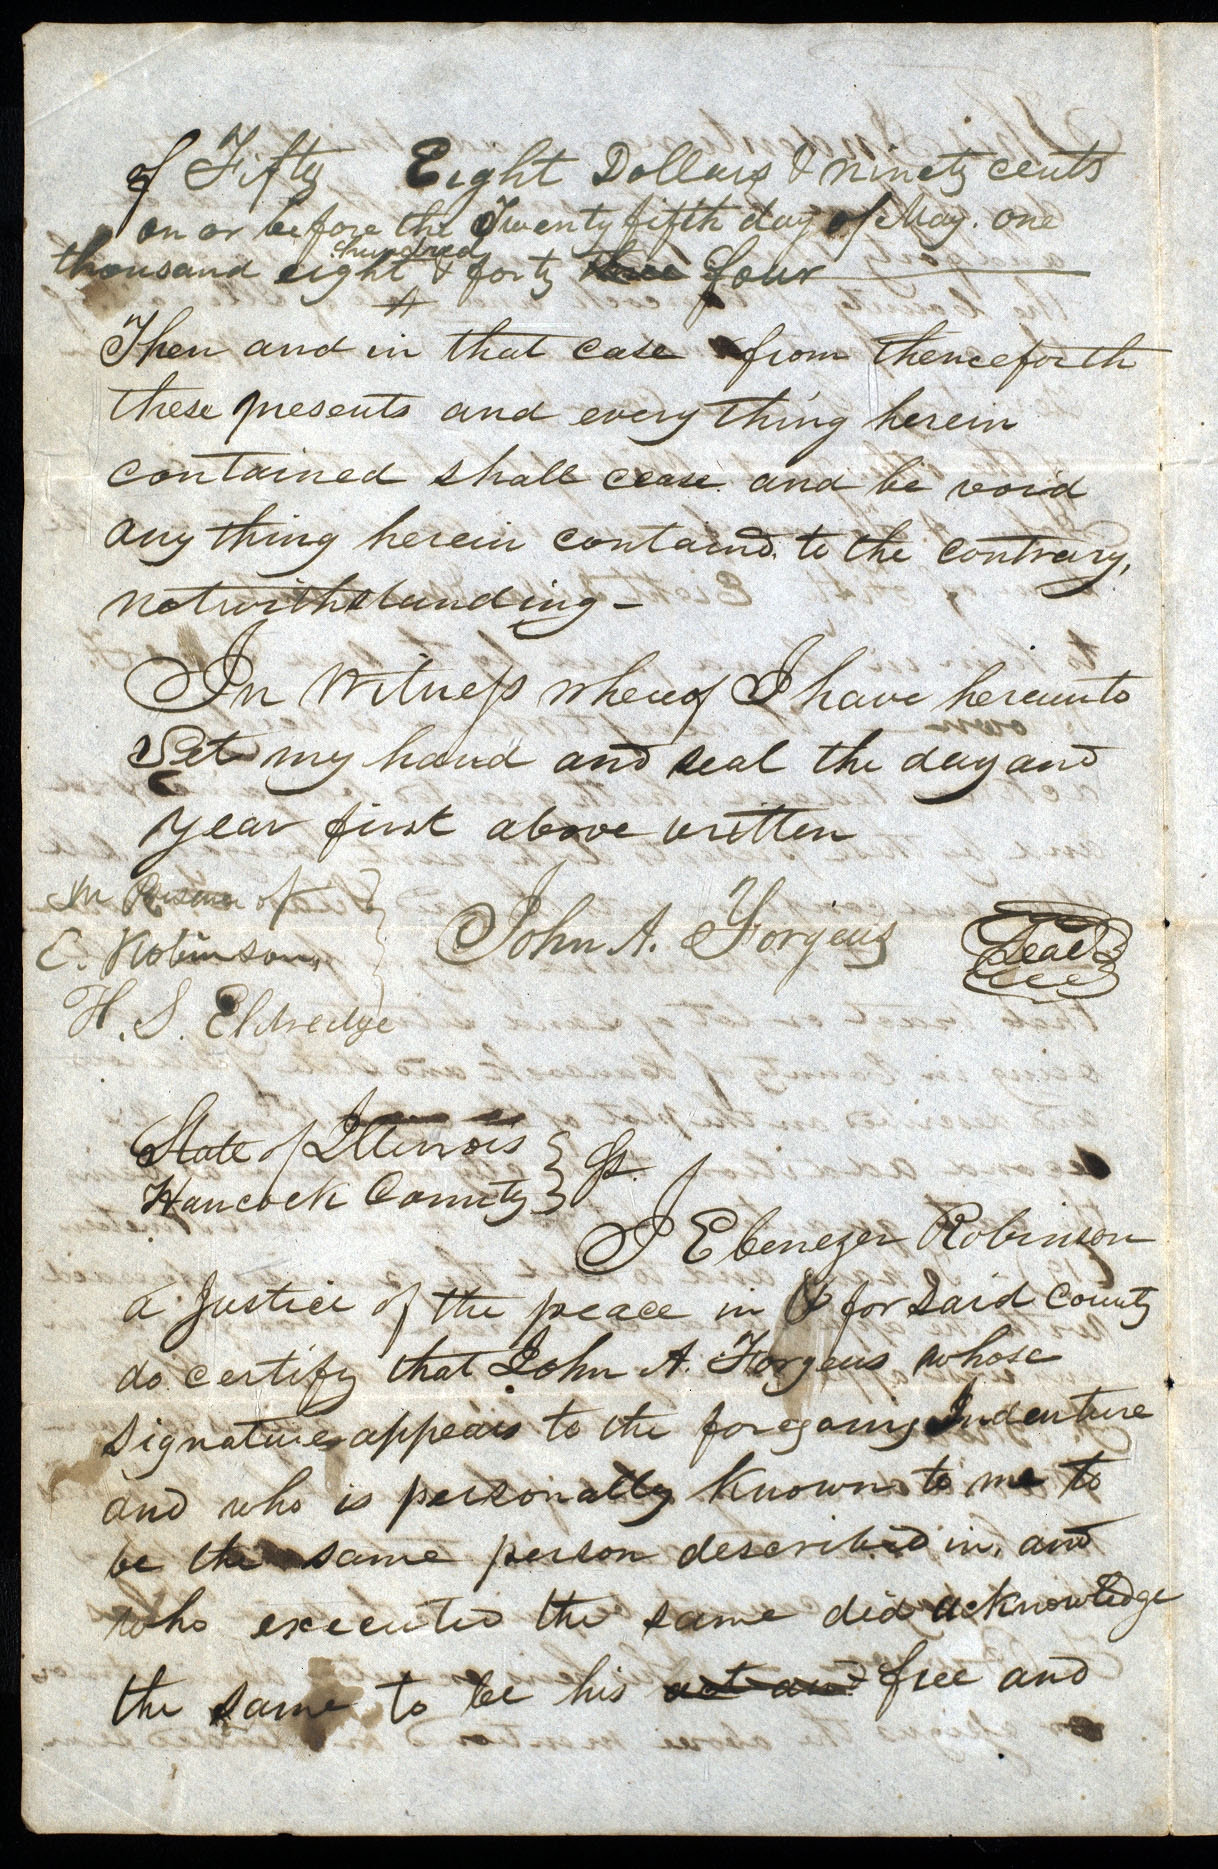 of Fifty Eight Dollars & ninety cents
on or before the Twenty fifth day of May. one
hundred
thousand eight & forty three four
Then and in that case from thenceforth
these presents and every thing herein
contained shall cease and be void
any thing herein containd to the contrary,
notwithstanding -
In Witness whereof I have hereunto
Set my hand and seal the day and
year first above written
In Presence of
E. Robinson,
H. S. Eldredge
John A. Forgeus
Seal
State of Illinois
Hancock County
I Ebenezer Robinson
a Justice of the peace in & for said County
do certify that John A. Forgeus whose
signature appears to the foregoing Indenture
and who is personally known to me to
be the same person described in, and
who executed the same did acknowledge
the same to be his act and free and